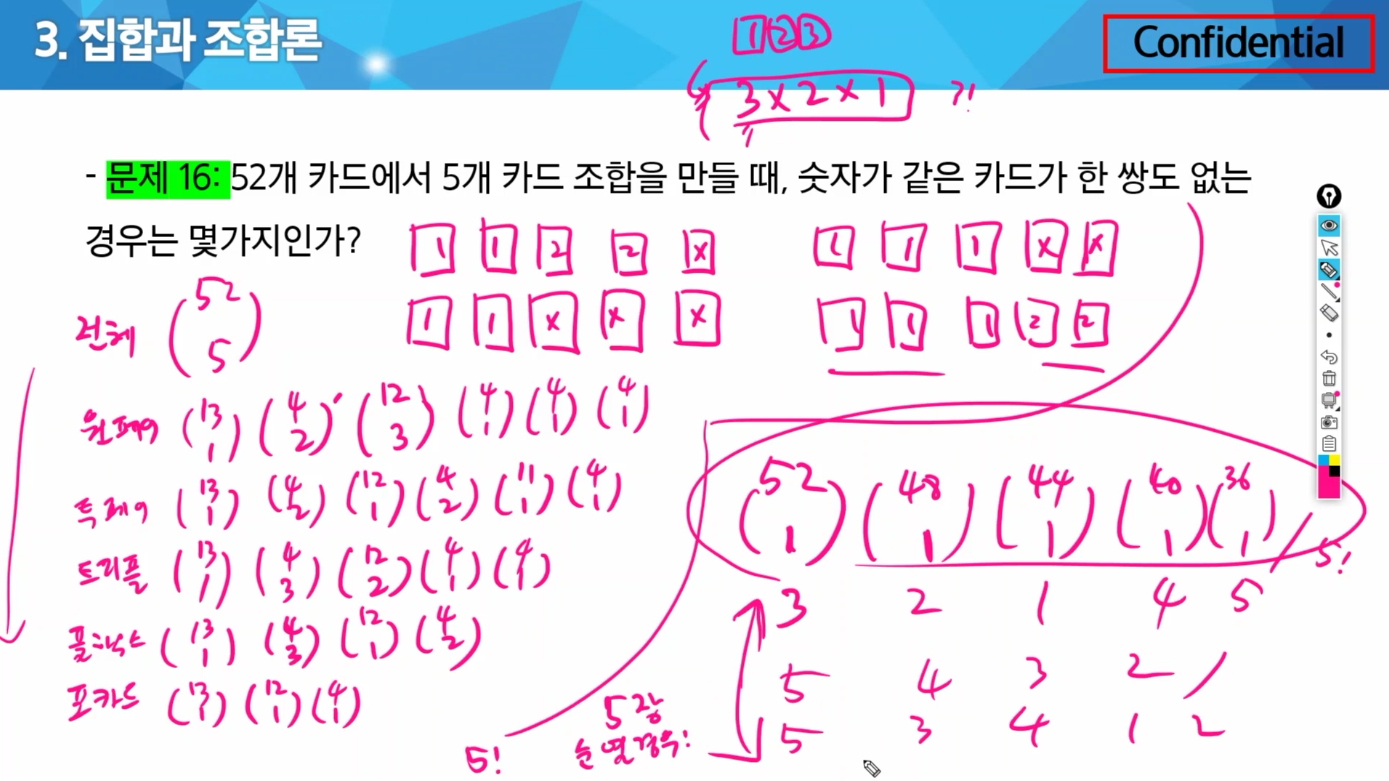 3. 집합과 조합론
Confidential
1 2 3
3 x 2 x 1
- 문제 16: 52개 카드에서 5개 카드 조합을 만들 때, 숫자가 같은 카드가 한 쌍도 없는
경우는 몇가지인가?
1 1 2 2 x
1 1 1 x x
1 1 x x x
1 1 1 2 2
전체 (52 5)
원페어 (13 1) (4 2) (12 3) (4 1) (4 1) (4 1)
투페어 (13 1) (4 2) (12 1) (4 2) (11 1) (4 1)
트리플 (13 1) (4 3) (12 2) (4 1) (4 1)
풀하우스 (13 1) (4 3) (12 1) (4 2)
포카드 (13 1) (12 1) (4 1)
(52 1) (48 1) (44 1) (40 1) (36 1) / 5!
3 2 1 4 5
5 4 3 2 1
5 3 4 1 2
5장
순열경우!
5!